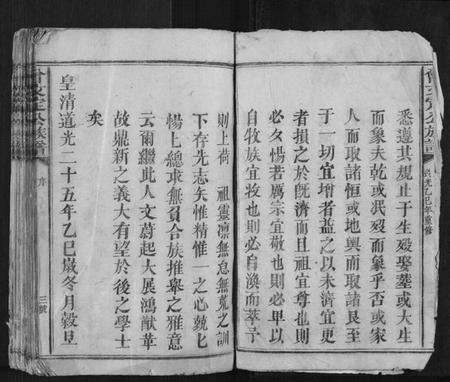 曾文定公族譜
道光乙巳年重修
悉遵其規止于生歿娶墓或大生
而象夫乾或泯歿而象乎否或家
人而取諸恒或地輿而取諸艮至
于一切宜增者益之以未濟宜更
者損之於旣濟而且祖宜尊也則
必夕惕若厲宗宜敬也則必早以
自牧族宜妝也則必自渙而萃予
則上荷 祖靈凛無怠無荒之訓
下存先志矢惟精惟一之心兢七
惕上總求無負合族推舉之雅意
云爾繼此人文蔚起大展鴻猷革
故鼎新之義大有望於後之學士
矣
皇清道光二十五年乙巳歲冬月穀旦
曾文定公族譜
序
三號